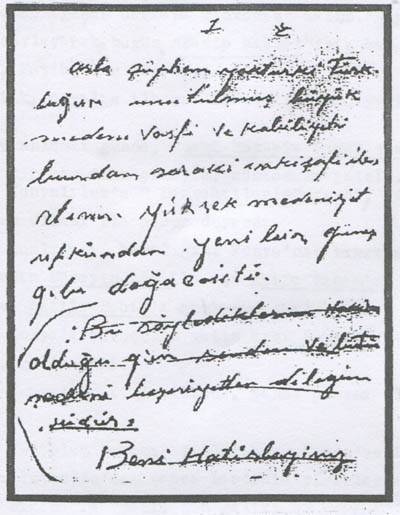 asla şüphem yoktur ki Türk
lüğün unutulmuş büyük
medeni vasfı ve kabiliyeti
bundan sonraki inkişafı ile
atinin yüksek medeniyet
ufkundan yeni bir güneş
gibi doğacaktır.
Bu söylediklerim
olduğu gün senden ve bütün
medeni beşeriyetten dileğim
şudur:
Beni Hatırlayınız